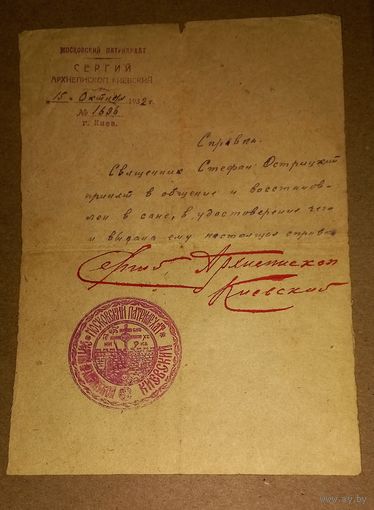 МОСКОВСКИЙ ПАТРИАРХАТ
СЕРГИЙ
АРХИЕПИСКОП КИЕВСКИЙ
15. Октября 1932 г.
№ 1636
г. Киев.
Справка.
Священник Стефан Острицкий
принят в общение и восстанов-
лен в сане, в удостоверение чего
и выдана ему настоящая справка
Сергий Архиепископ
Киевский
МОСКОВСКИЙ ПАТРИАРХАТ
КИЕВСКИЙ
www.ay.by